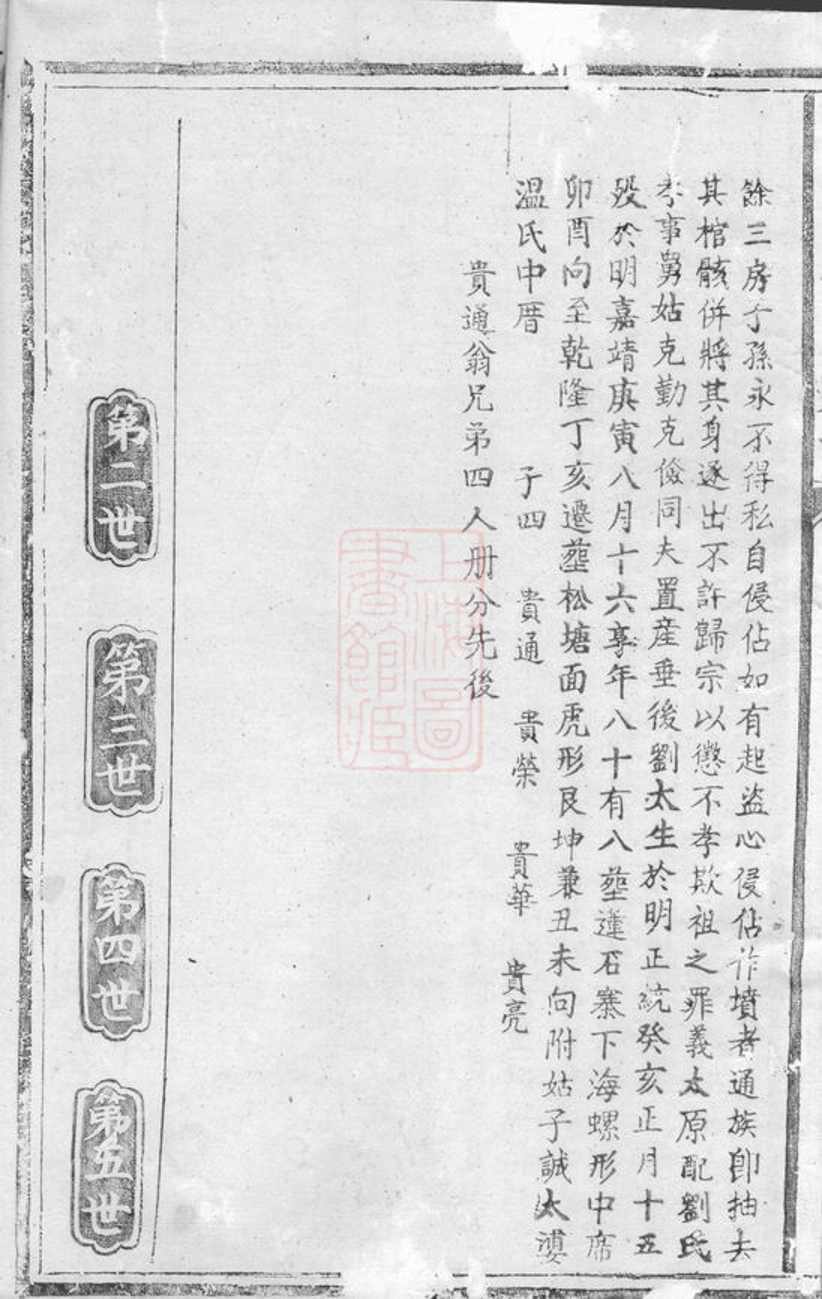 餘三房子孫永不得私自侵佔如有起盜心侵佔作墳者通族卽抽去
其棺骸併將其身逐出不許歸宗以懲不孝欺祖之罪義太原配劉氏
孝事舅姑克勤克儉同夫置産垂後劉太生於明正統癸亥正月十五
殁於明嘉靖庚寅八月十六享年八十有八塟蓮石寨下海螺形中席
卯酉向至乾隆丁亥遷塟松塘面虎形艮坤兼丑未向附姑子誠太婆
温氏中厝 子四 貴通 貴榮 貴華 貴亮
貴通翁兄弟四人册分先後
第二世 第三世 第四世 第五世
上海圖
書館藏